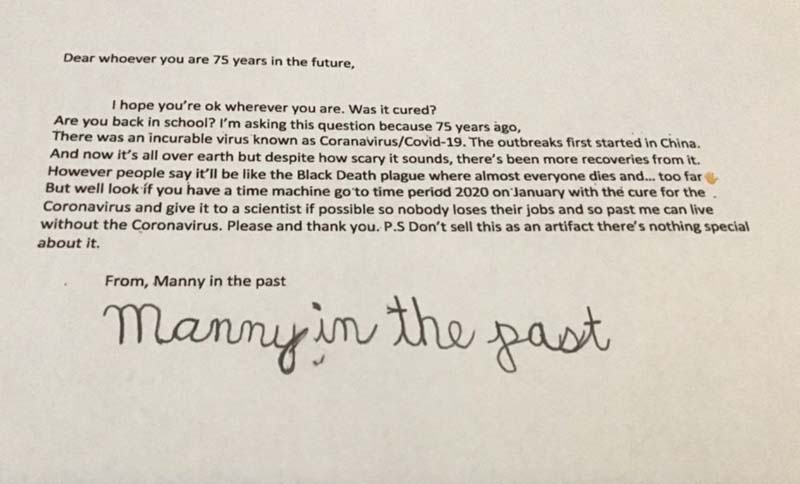 Dear whoever you are 75 years in the future,
I hope you're ok wherever you are. Was it cured?
Are you back in school? I'm asking this question because 75 years ago,
There was an incurable virus known as Coranavirus/Covid-19. The outbreaks first started in China.
And now it's all over earth but despite how scary it sounds, there's been more recoveries from it.
However people say it'll be like the Black Death plague where almost everyone dies and... too far🖐
But well look if you have a time machine go to time period 2020 on January with the cure for the
Coronavirus and give it to a scientist if possible so nobody loses their jobs and so past me can live
without the Coronavirus. Please and thank you. P.S Don't sell this as an artifact there's nothing special
about it.
From, Manny in the past
Manny in the past